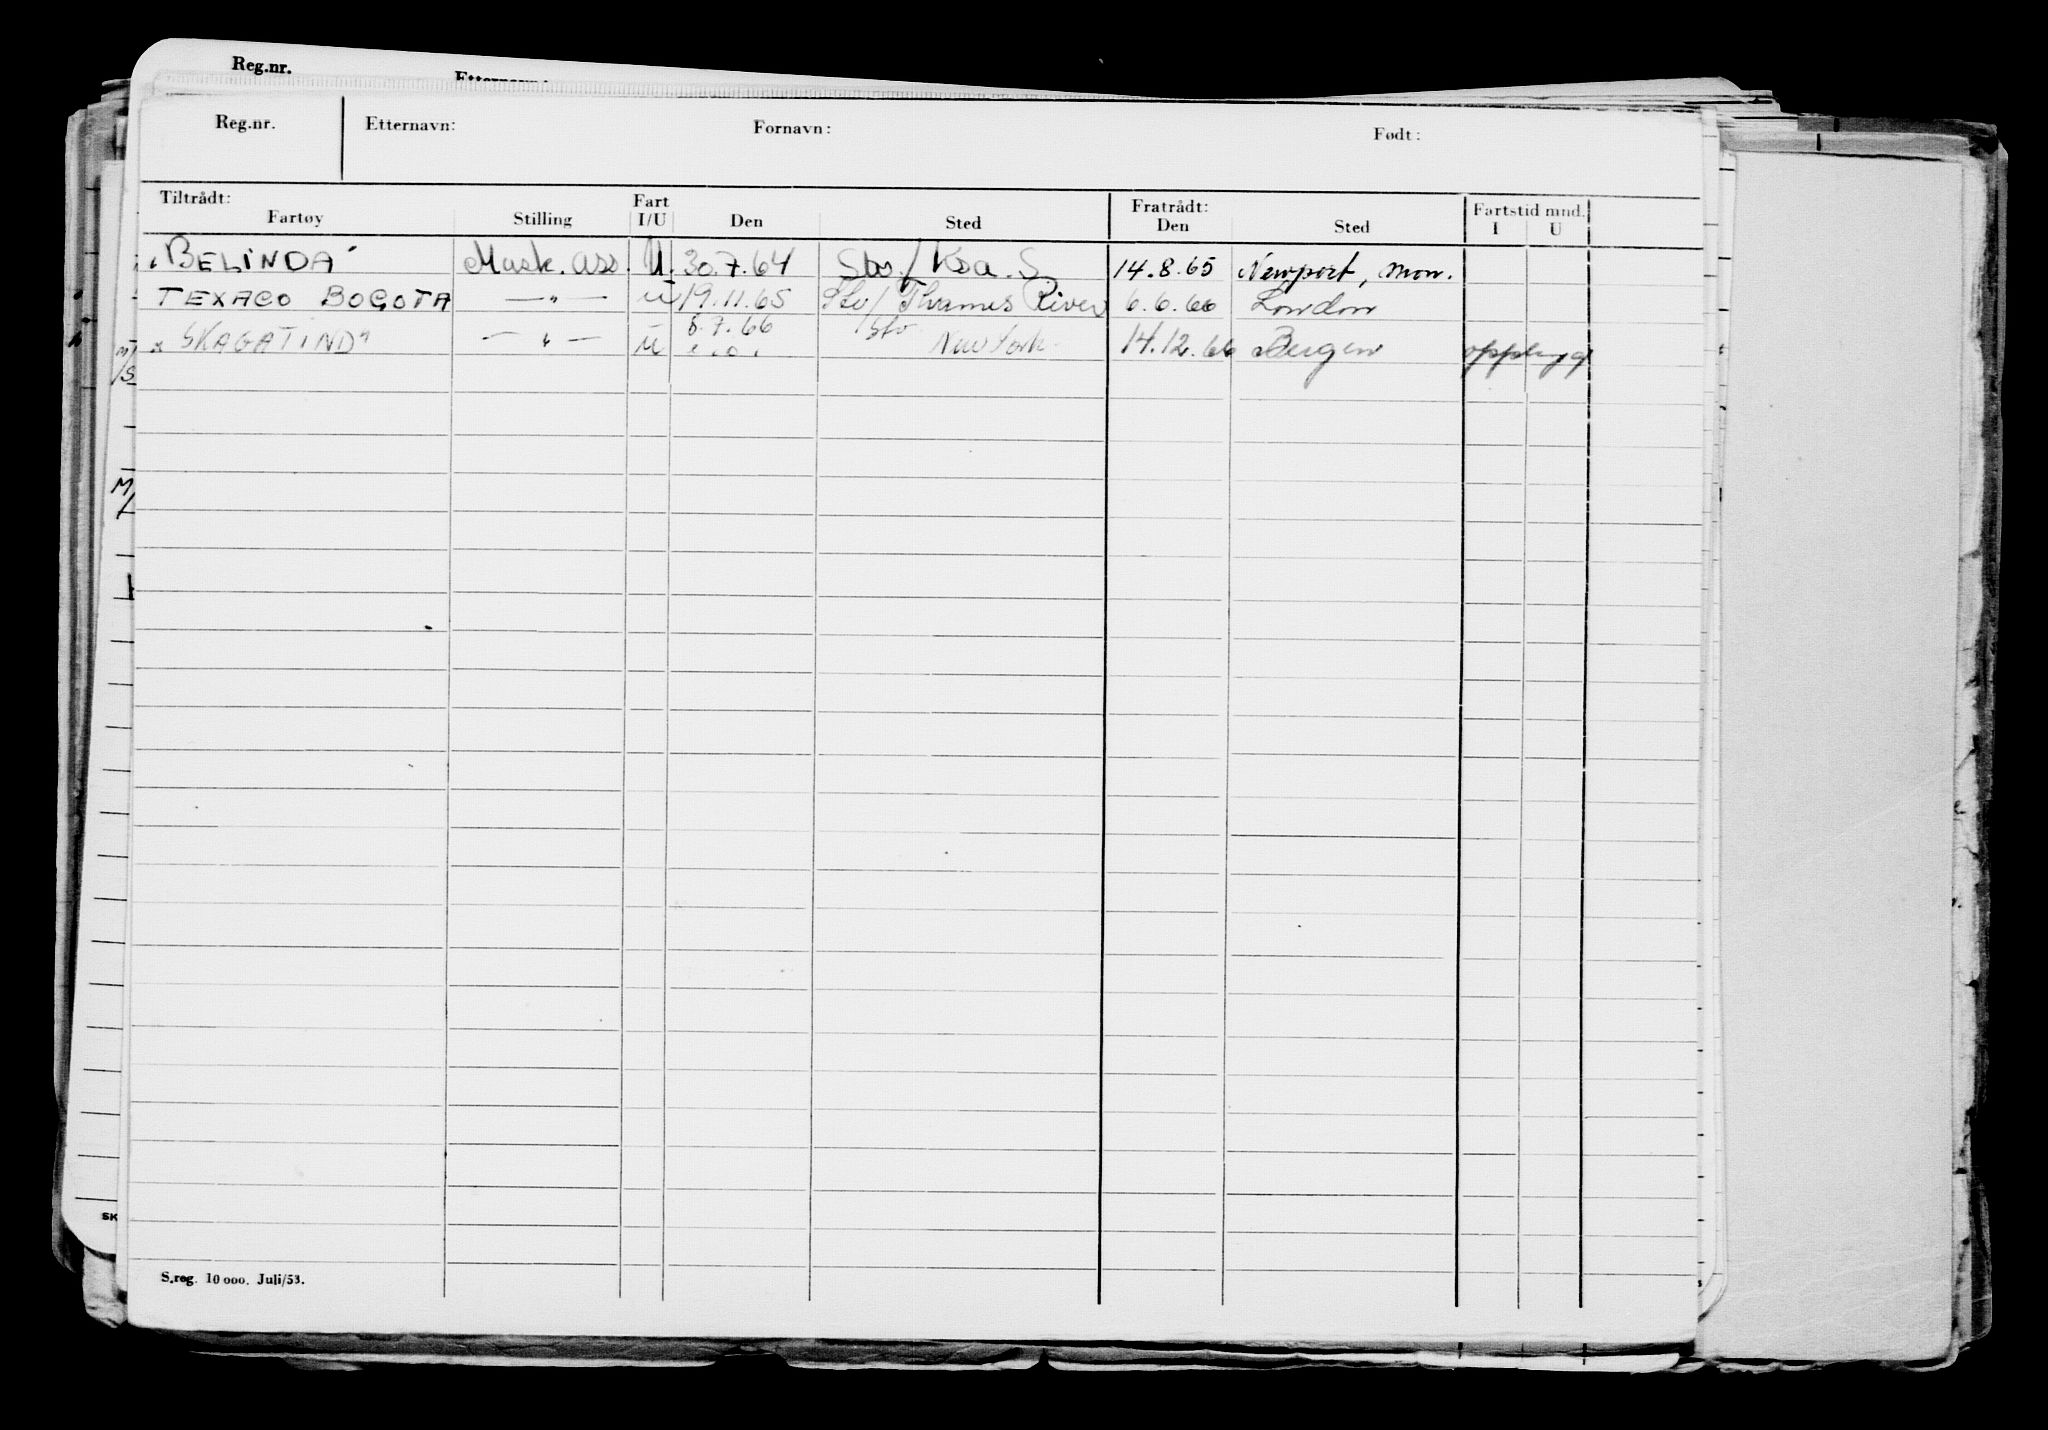 Reg.nr.
Reg.nr. Etternavn: Fornavn: Født:
Tiltrådt: Fart Fratrådt: Fartstid mnd.
Fartøy Stilling I/U Den Sted Den Sted I U
"BELINDA" Mask. ass. U. 30.7.64 Stv./Kra. S 14.8.65 Newport, Mon.
TEXACO BOGOTA —"— U 19.11.65 Stv/Thames River 6.6.66 London
8.7.66 Stv
"SKAGATIND" —"— U New York 14.12.66 Bergen opplagg
M/S
S.reg. 10 000. Juli/53.